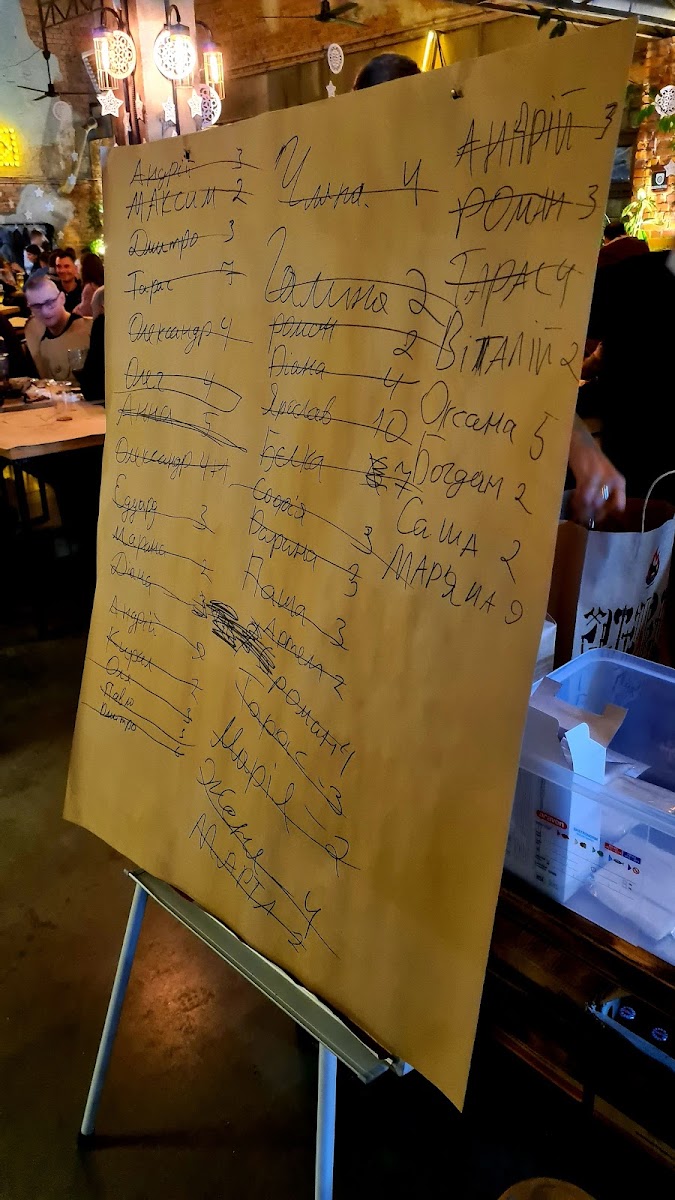 Андрій 3
МАКСИМ 2
Дмитро 3
Тарас 7
Олександр 4
Олег 4
Анна 5
Олександр 4+1
Едуард 3
Марина 2
Дана 3
Андрій 2
Кирил 2
Оля 3
Павло 3
Дмитро 6
4
Галина 2
Роман 2
Діана 4
Ярослав 10
Белка 7
Софія 3
Дарина 3
Паша 3
Артем 2
Роман 4
Тарас 3
Марія - 2
Жаня 4
МАРТА 2
АНДРІЙ 3
РОМАН 3
ТАРАС 4
ВІТАЛІЙ 2
Оксана 5
Богдан 2
САША 2
МАР'ЯНА 9